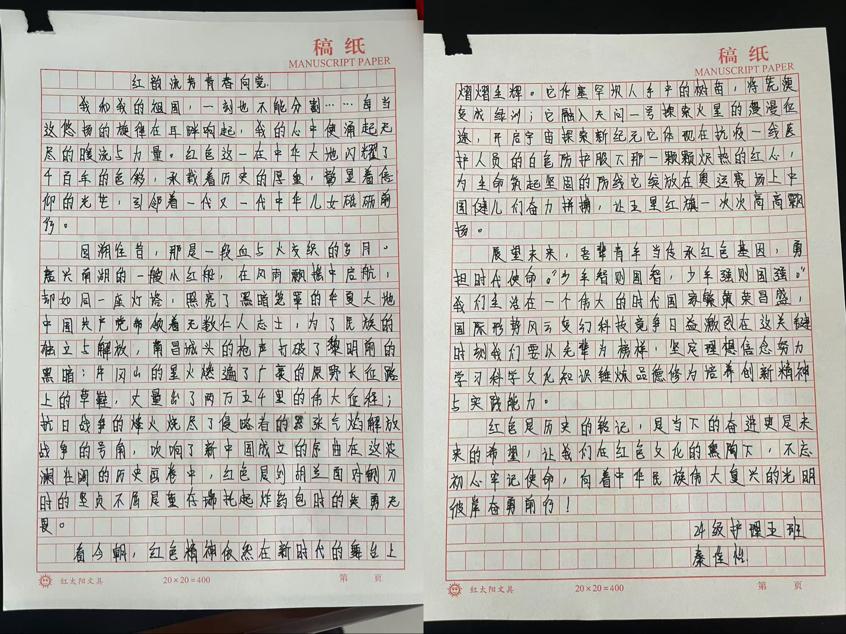 稿纸
MANUSCRIPT PAPER
红韵流芳青春向党
我和我的祖国，一刻也不能分割……每当
这悠扬的旋律在耳畔响起，我的心中便涌起无
尽的暖流与力量。红色这一在中华大地闪耀了
千百年的色彩，承载着历史的厚重，着信
仰的光芒，引领着一代又一代中华儿女砥砺前
行。
回溯往昔，那是一段血与火交织的岁月。
嘉兴南湖的一艘小红船，在风雨飘摇中启航，
却如同一座灯塔，照亮了黑暗笼罩的华夏大地
中国共产党带领着无数仁人志士，为了民族的
独立与解放，南昌城头的枪声打破了黎明前的
黑暗；井冈山的星火燎遍了广袤的原野长征路
上的草鞋，丈量出了两万五千里的伟大征程；
抗日战争的烽火烧尽了侵略者的嚣张气焰解放
战争的号角，吹响了新中国成立的序曲在这波
澜壮阔的历史画卷中，红色是刘胡兰面对铡刀
时的坚贞不屈是董存瑞托起炸药包时的英勇无
畏。
看今朝，红色精神依然在新时代的舞台上
红太阳文具
20×20=400
第 页
稿纸
MANUSCRIPT PAPER
熠熠生辉。它在塞罕坝人手中的树苗，将荒漠
变成绿洲；它融入天问一号探索火星的漫漫征
途，开启宇宙探索新纪元它体现在抗疫一线医
护人员的白色防护服下那一颗颗炽热的红心，
为生命筑起坚固的防线它绽放在奥运赛场上中
国健儿们奋力拼搏，让五星红旗一次次高高飘
扬。
展望未来，吾辈青年当传承红色基因，勇
担时代使命。“少年智则国智，少年强则国强。”
我们生活在一个伟大的时代国家繁荣昌盛，
国际形势风云变幻科技竞争日益激烈在这关键
时刻我们要以先辈为榜样，坚定理想信念努力
学习科学文化知识锤炼品德修为培养创新精神
与实践能力。
红色是历史的铭记，是当下的奋进更是未
来的希望，让我们在红色文化的熏陶下，不忘
初心牢记使命，向着中华民族伟大复兴的光明
彼岸奋勇前行！
24级护理五班
秦佳怡
红太阳文具
20×20=400
第 页